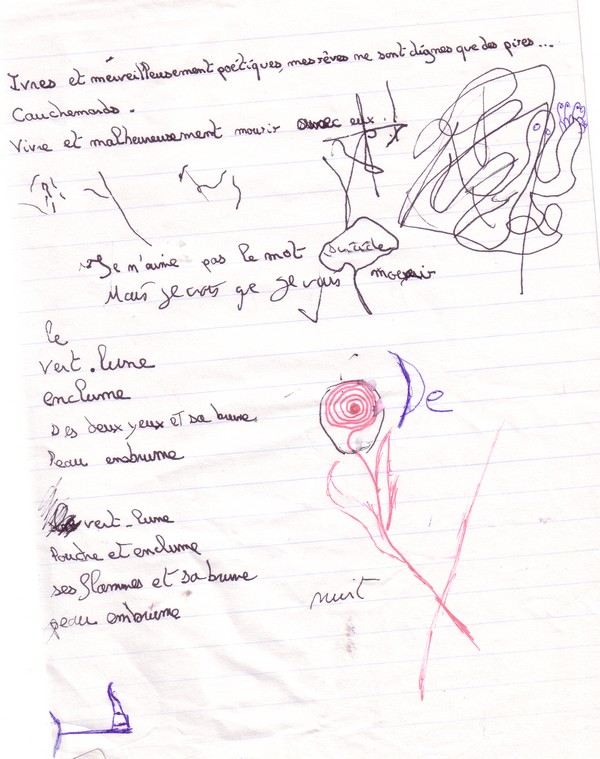 Ivres et merveilleusement poétiques, mes rêves ne sont dignes que des pires...
Cauchemards.
Vivre et malheureusement mourir avec eux.
Je n'aime pas le mot suicide
Mais je crois qe je vais mourir
le
vert.lune
enclume
Des deux yeux et sa brune
Peau embrume
De
vert-lune
Poudre et enclume
ses flammes et sa brune
peau embrume
nuit